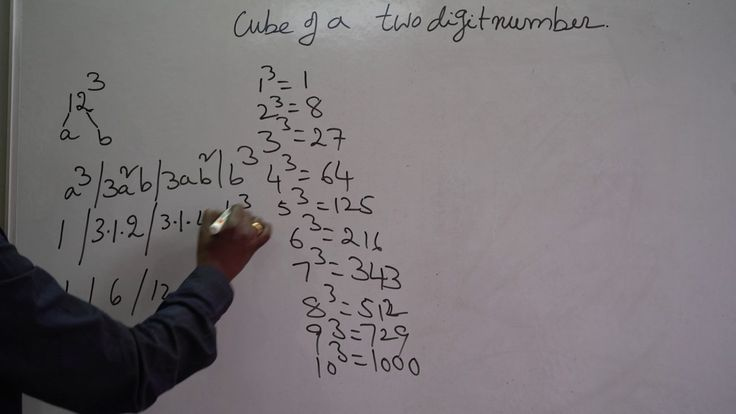 Cube of a two digit number.
12³
a b
a³/3a²b/3ab²/b³
1 /3.1.2/3.1.4
/ 6 / 12
1³=1
2³=8
3³=27
4³=64
5³=125
6³=216
7³=343
8³=512
9³=729
10³=1000